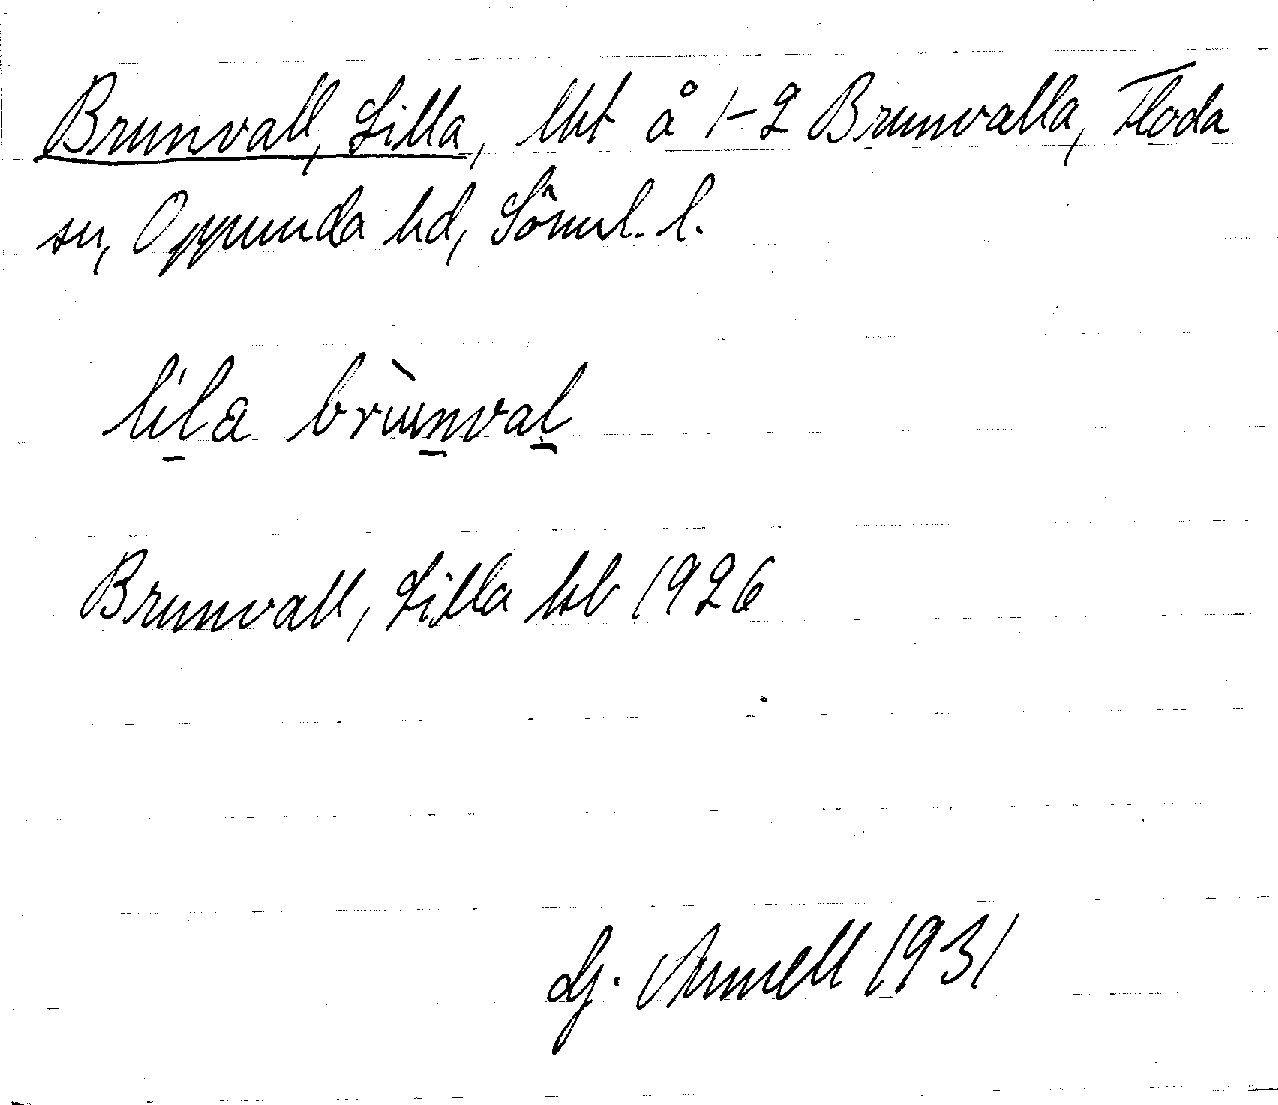 Brunvall, Lilla, lht å 1-2 Brunvalla, Floda
sn, Oppunda hd, Söml. l.
lila brùnval
Brunvall, Lilla kb 1926
G. Arnell 1931